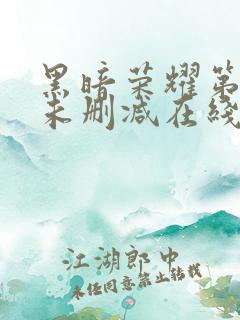 黑暗荣耀第
未删减在线
江湖郎中
未经同意禁止转载